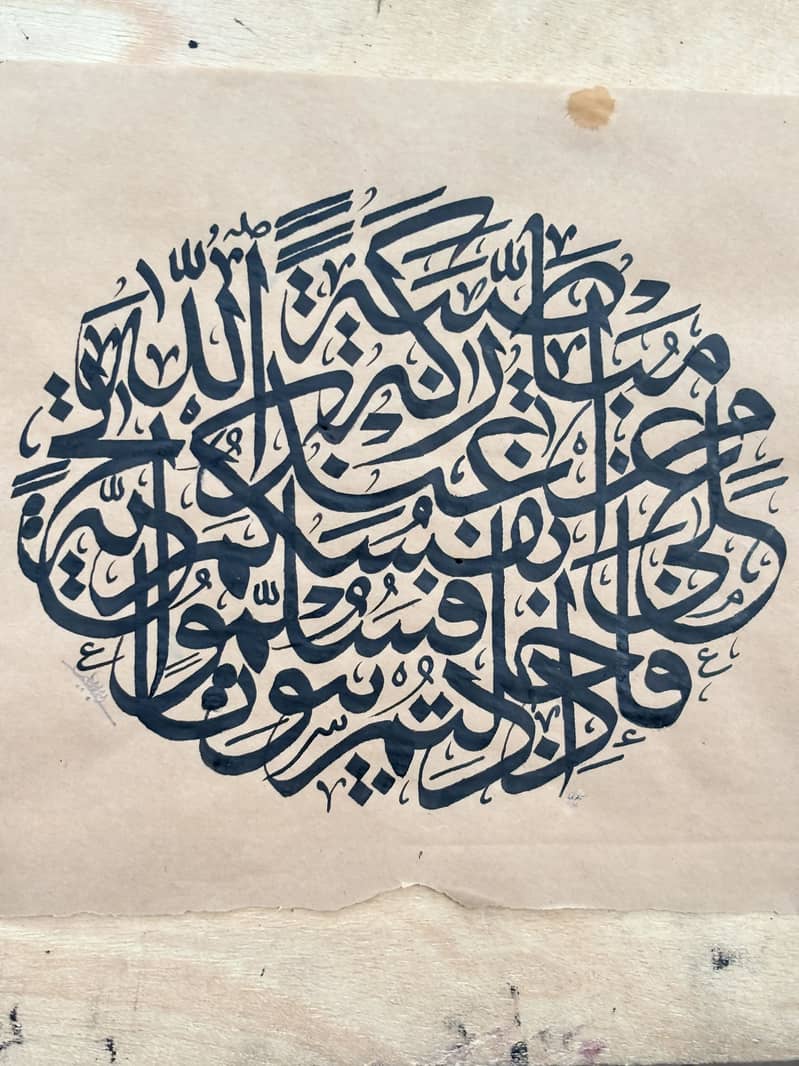 فَإِذَا دَخَلْتُمْ بُيُوتًا فَسَلِّمُوا
عَلَىٰ أَنْفُسِكُمْ تَحِيَّةً
مِنْ عِنْدِ اللَّهِ
مُبَارَكَةً طَيِّبَةً